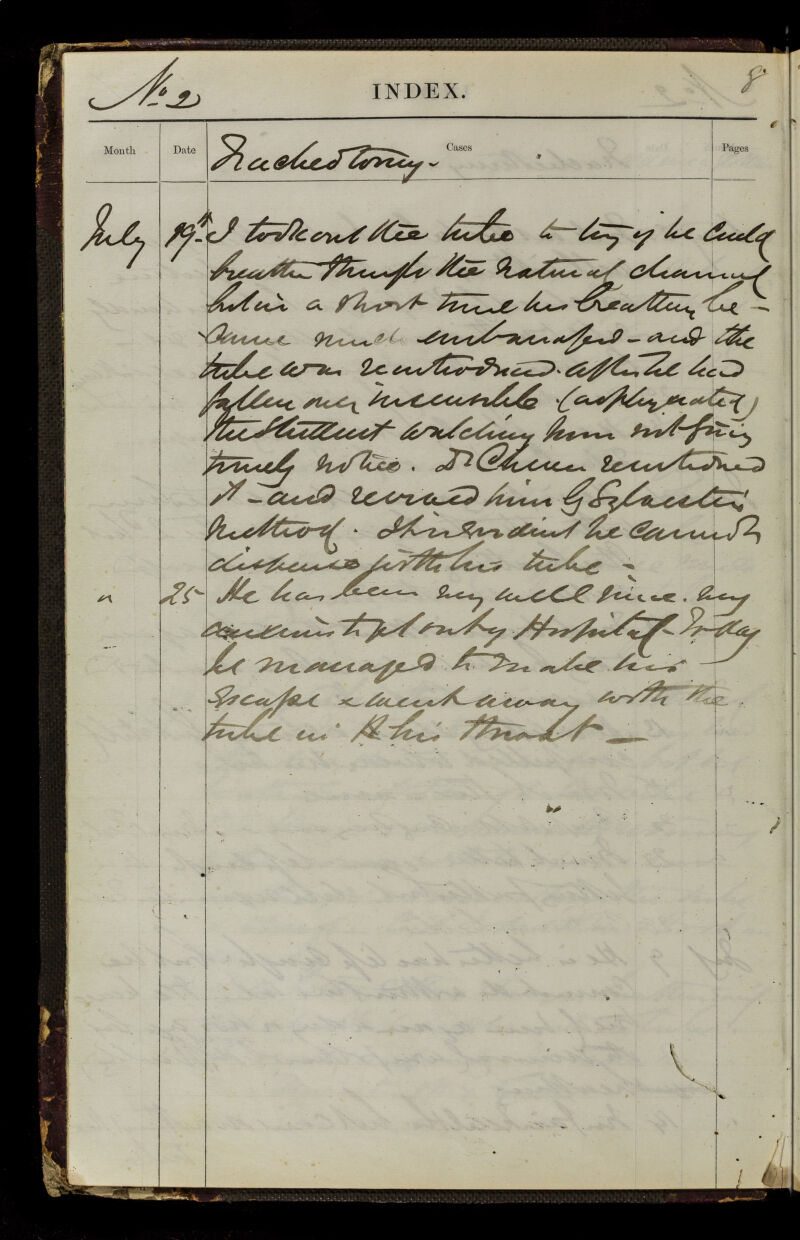 No 2 INDEX. 8
Month Date Cases Pages
Tracheotomy.
July 19th I took out the tube to try if he could
breathe through the natural channel
but in a short time his breathing be-
came much embarrassed - and the
tube was reintroduced after he had
fallen over insensible. (asphyxiated)
the Student watching him not giving
timely notice. Dr reintroduced
it - and revived him by Sylvester's
method. It is evident he cannot
dispense with his tube -
" 25 He has been very well since. very
anxious to get out of Hospital - Today
he managed to make his
escape & went away with the
tube in his throat -